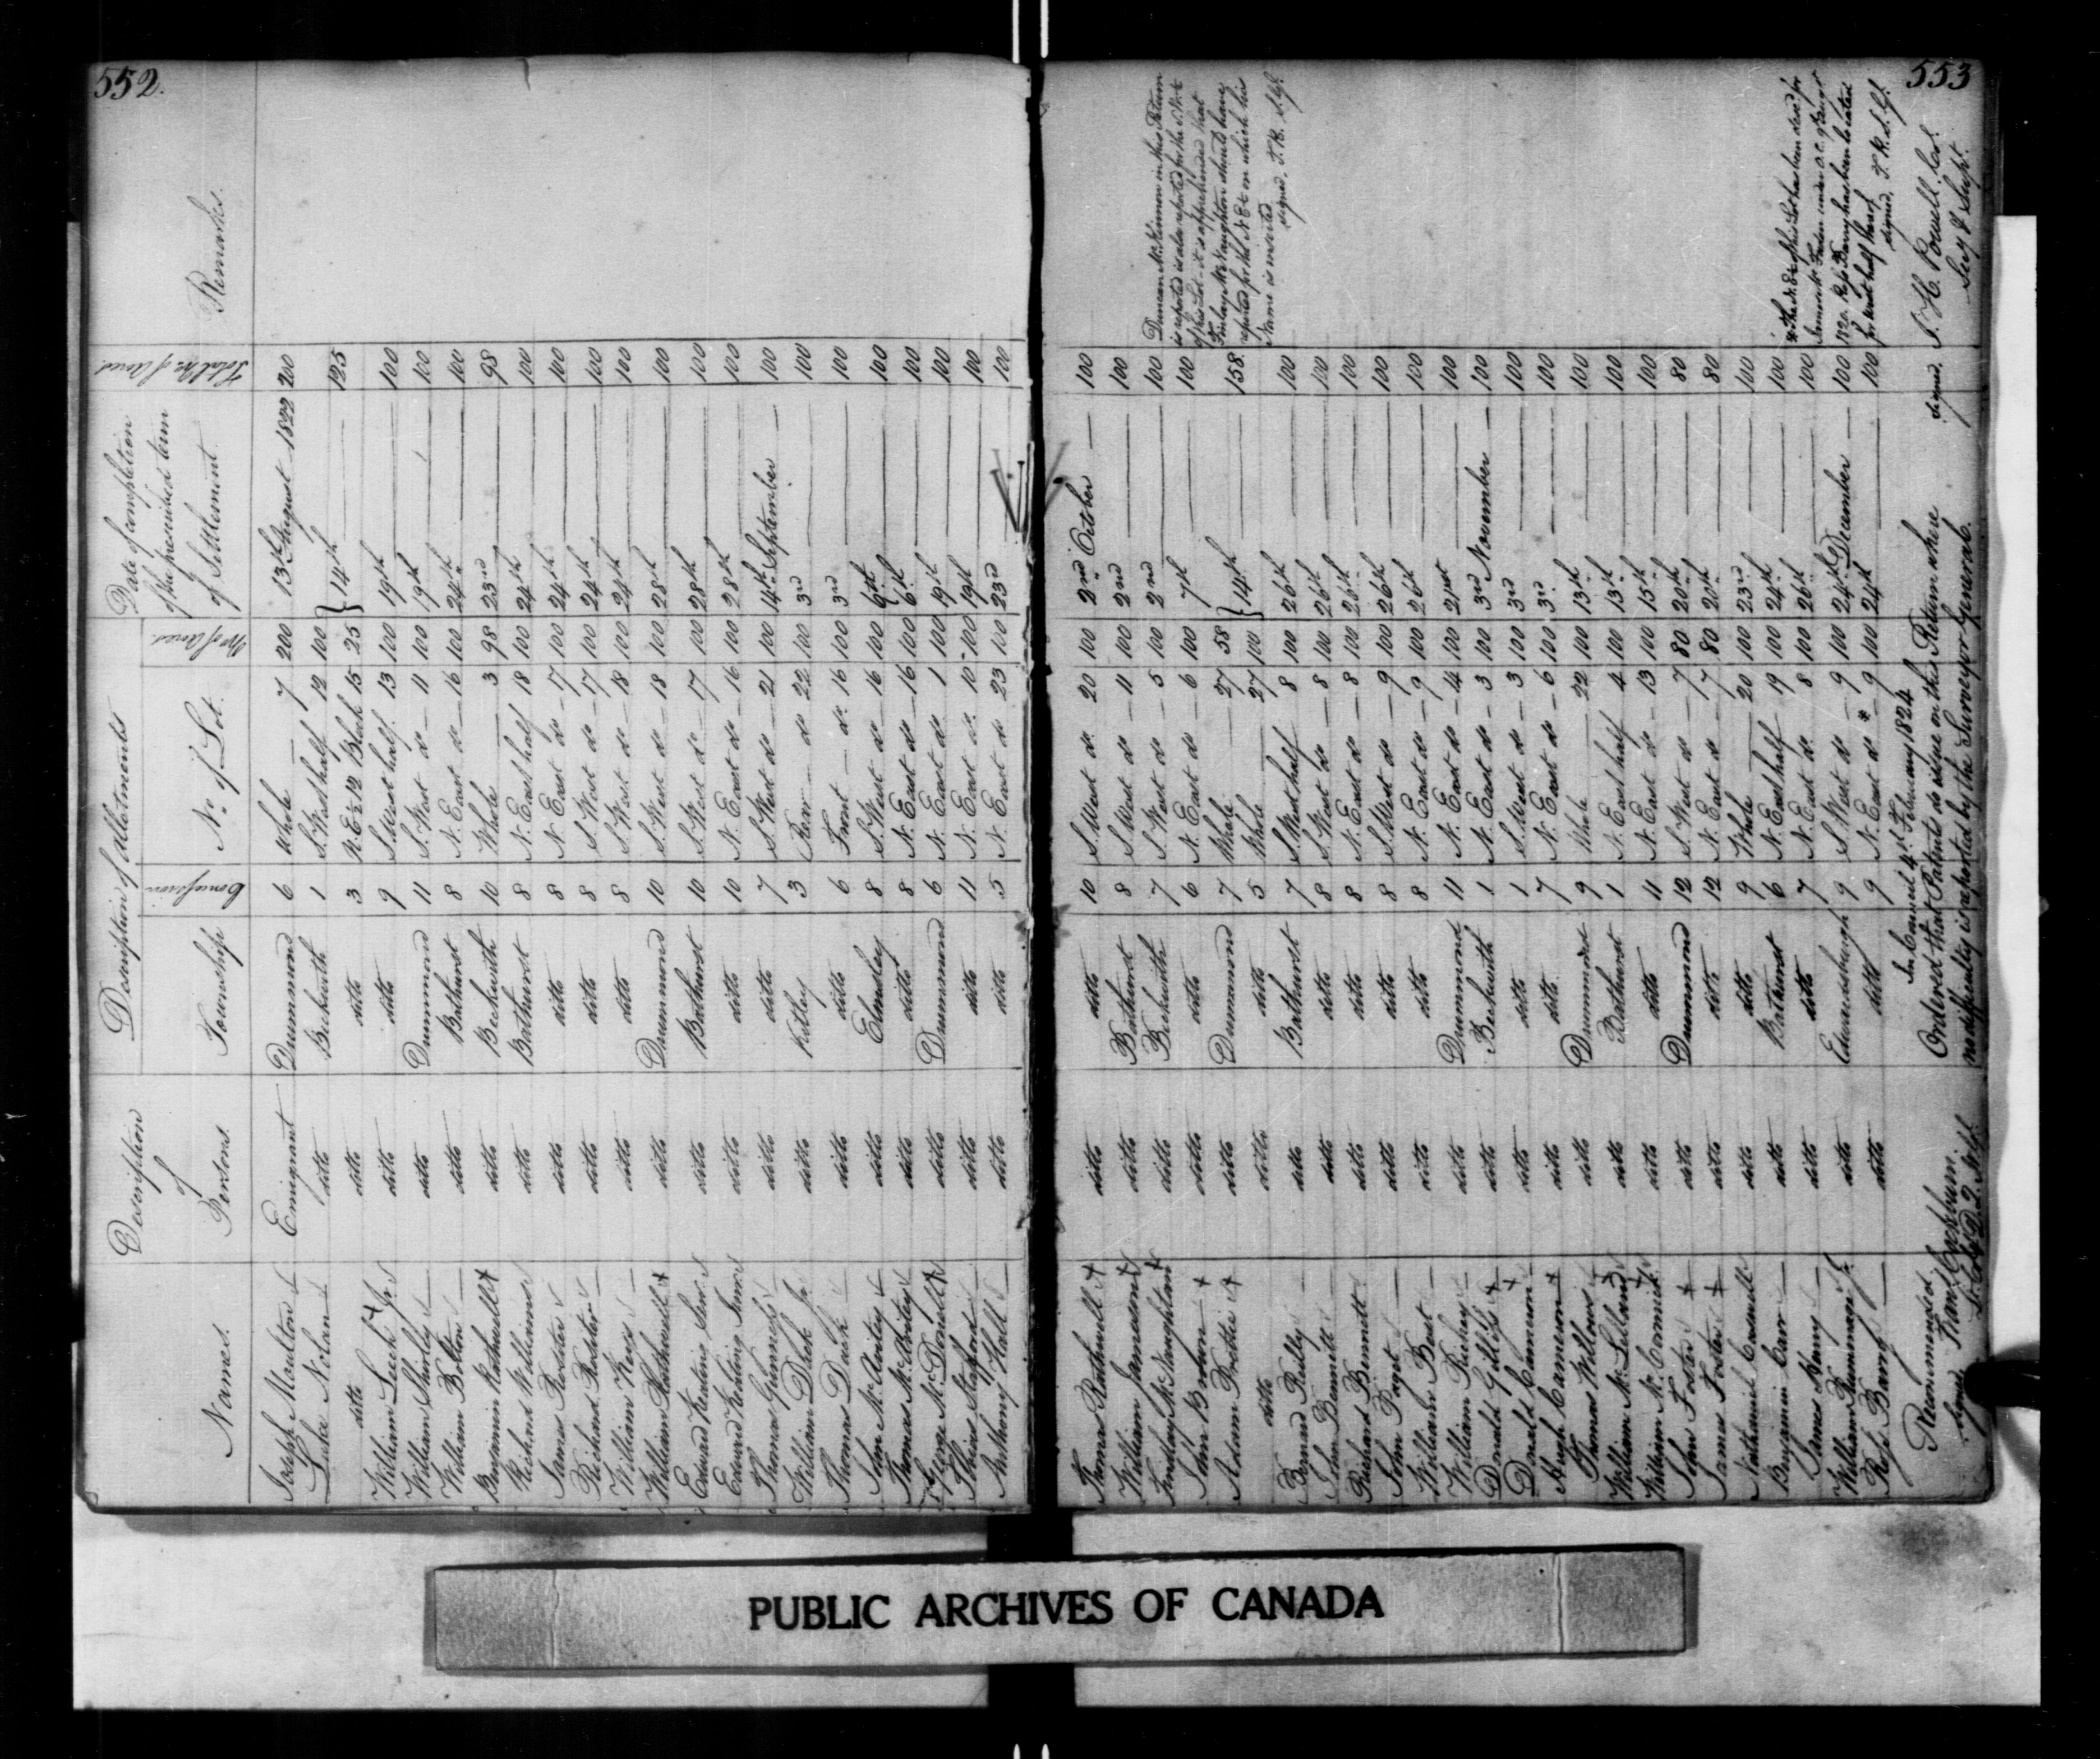 552.
Names. Description of Persons. Description of Allotments Date of completion of the prescribed term of Settlement Total No. of Acres Remarks.
Township Concession No. of Lot. No. of Acres.
Joseph Moulton Emigrant Drummond 6 Whole 7 200 13th August 1822 200
Luke Nolan ditto Beckwith 1 S. West half 12 100 } 14th 125
ditto ditto ditto 3 N.E. ½ 12 Block 15 25
William Leech Jr. ditto ditto 9 S. West half 13 100 19th 100
William Shirley ditto Drummond 11 S. West do 11 100 19th 100
William Bolton ditto Bathurst 8 N. East do 16 100 24th 100
Benjamin Rathwell ditto Beckwith 10 Whole 3 98 23rd 98
Richard Williams ditto Bathurst 8 N. East half 18 100 24th 100
James Foster ditto ditto 8 N. East do 17 100 24th 100
Richard Foster ditto ditto 8 S. West do 17 100 24th 100
William Keys ditto ditto 8 S. West do 18 100 24th 100
William Rathwell ditto Drummond 10 S. West do 18 100 28th 100
Edward Keating Senr ditto Bathurst 10 S. West do 17 100 28th 100
Edward Keating Junr ditto ditto 10 N. East do 16 100 28th 100
Thomas Gunness ditto ditto 7 S. West do 21 100 14th September 100
William Dack Jr. ditto Kitley 3 Rear do 22 100 3rd 100
Thomas Dack ditto ditto 6 Front do 16 100 3rd 100
John McVeity ditto Elmsley 8 S. West do 16 100 6th 100
Thomas McVeity ditto ditto 8 N. East do 16 100 6th 100
George McDonell ditto Drummond 6 N. East do 1 100 19th 100
Tobias Stafford ditto ditto 11 N. East do 10 100 19th 100
Anthony Hall ditto ditto 5 N. East do 23 100 23rd 100
553
Thomas Rathwell ditto ditto 10 S. West do 20 100 2nd October 100
William Jameson ditto Bathurst 8 S. West do 11 100 2nd 100
Findlay McNaughton ditto Beckwith 7 S. West do 5 100 2nd 100
John Brown ditto ditto 6 N. East do 6 100 7th 100
Adam Prettie ditto Drummond 7 Whole 27 58 } 14th 158
ditto ditto ditto 5 Whole 27 100
Bernard Reilly ditto Bathurst 7 S. West half 8 100 26th 100
John Bennett ditto ditto 8 S. West do 8 100 26th 100
Richard Bennett ditto ditto 8 N. East do 8 100 26th 100
John Paget ditto ditto 8 S. West do 9 100 26th 100
William Best ditto ditto 8 N. East do 9 100 26th 100
William Richey ditto Drummond 11 N. East do 4 100 21st 100
Donald Gillies ditto Beckwith 1 N. East do 3 100 3rd November 100
Donald Cameron ditto ditto 1 S. West do 3 100 3rd 100
Hugh Cameron ditto ditto 7 N. East do 6 100 3rd 100
Thomas Willows ditto Drummond 9 Whole 22 100 13th 100
William McLelland ditto Bathurst 1 N. East half 4 100 13th 100
William McCormick ditto ditto 11 N. East do 13 100 15th 100
John Foster ditto Drummond 12 S. West do 7 80 20th 80
James Foster ditto ditto 12 N. East do 7 80 20th 80
Nathaniel Creswell ditto ditto 9 Whole 20 100 23rd 100
Benjamin Carr ditto Bathurst 6 N. East half 19 100 24th 100
James Kenny ditto ditto 7 N. East do 8 100 26th 100
William Edwardsburgh 9 S. West do 9 100 24th December 100
Ross Barry ditto ditto 9 N. East do * 9 100 24th 100
Duncan McKinnon in this Return
is reported is also reported for the S.W. ½
of this Lot it is apprehended that
Finlay McNaughton should have
reported for the N.E. ½ on which his
Name is inserted
signed, T.R. S.G.
* the N.E. ½ this Lot has been desd. for
1820. Ross Barry has been located
for West half thereof
signed, T.R. S.G.
Recommended.
signed Franc. Cockburn.
Lt. Col. D.Q.M.G.
In Council 4th February 1824
Ordered that Patents do issue on this Return where
no difficulty is reported by the Surveyor General.
signed. I. H. Powell. Col.
Secy & Supt.
PUBLIC ARCHIVES OF CANADA